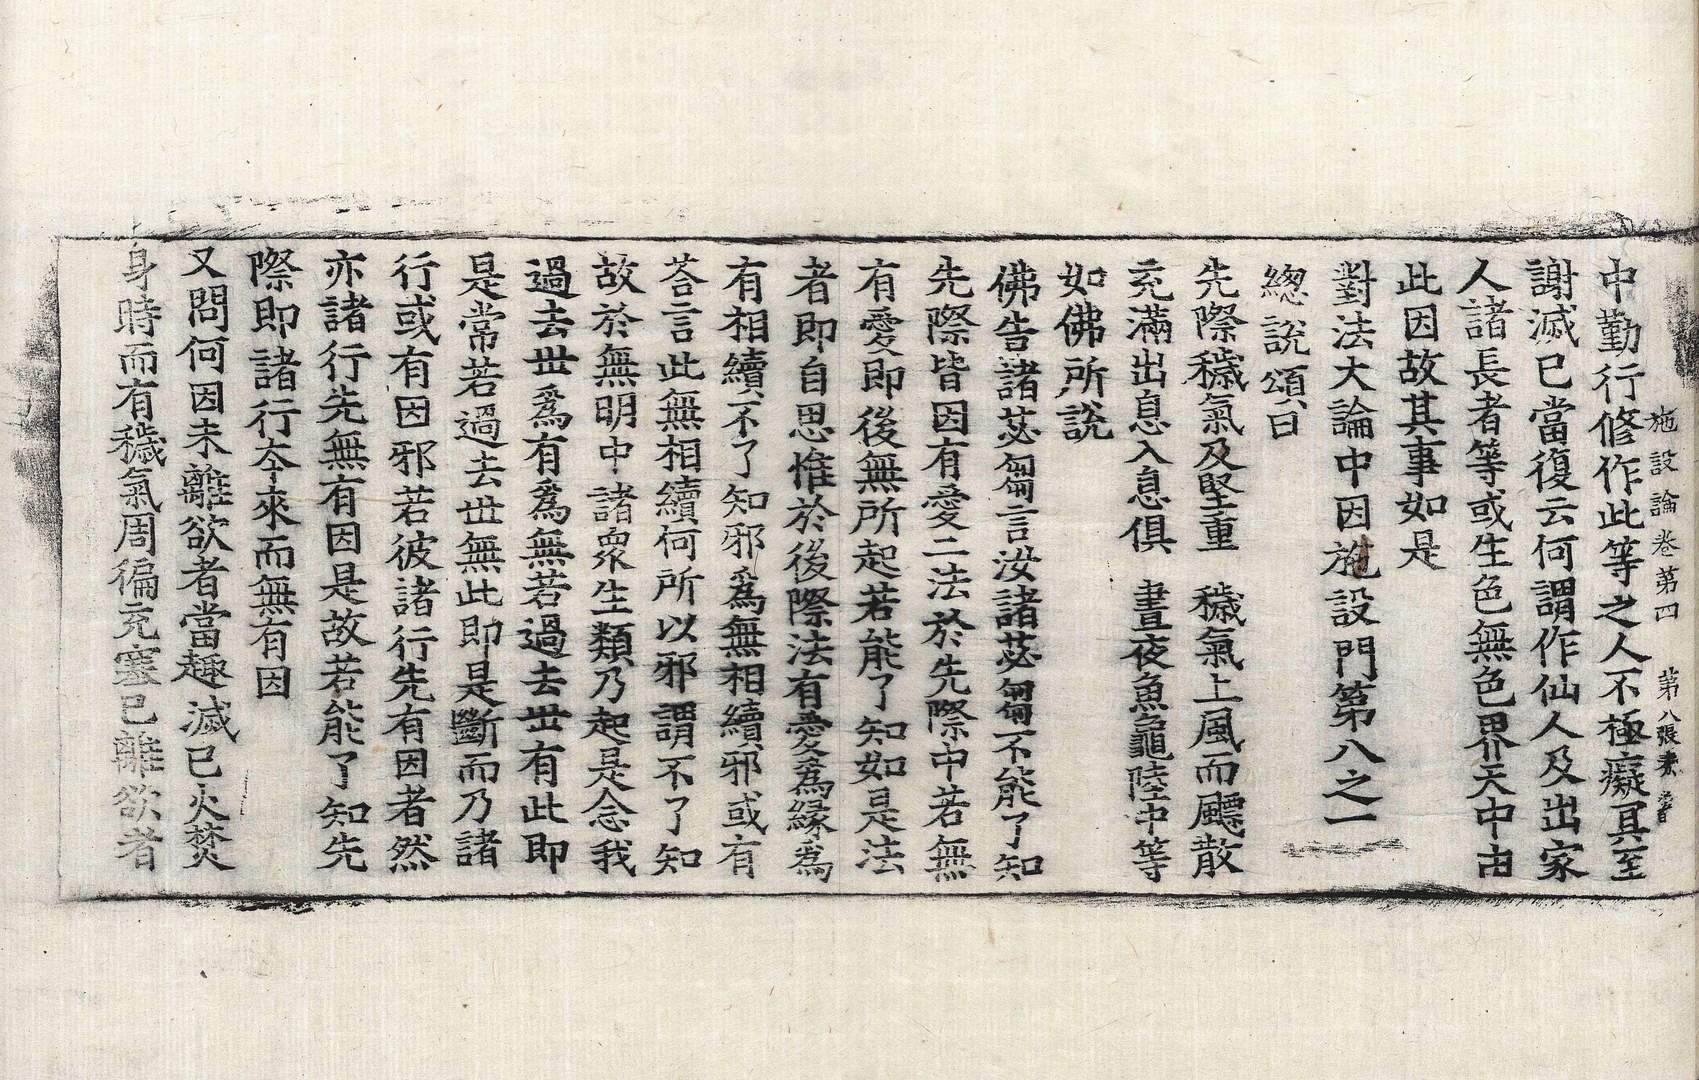 施設論卷第四 第八張 素
中勤行修作此等之人不極癡冥至
謝滅已當復云何謂作仙人及出家
人諸長者等或生色無色界天中由
此因故其事如是
對法大論中因施設門第八之一
緫說頌曰
先際穢氣及堅重 穢氣上風而飃散
充滿出息入息俱 晝夜魚龜陸中等
如佛所說
佛告諸苾芻言汝諸苾芻不能了知
先際皆因有愛二法於先際中若無
有愛即後無所起若能了知如是法
者即自思惟於後際法有愛爲緣爲
有相續不了知邪爲無相續邪或有
荅言此無相續何所以邪謂不了知
故於無明中諸衆生類乃起是念我
過去世爲有爲無若過去世有此即
是常若過去世無此即是斷而乃諸
行或有因邪若彼諸行先有因者然
亦諸行先無有因是故若能了知先
際即諸行夲來而無有因
又問何因未離欲者當趣滅已火焚
身時而有穢氣周徧充塞已離欲者